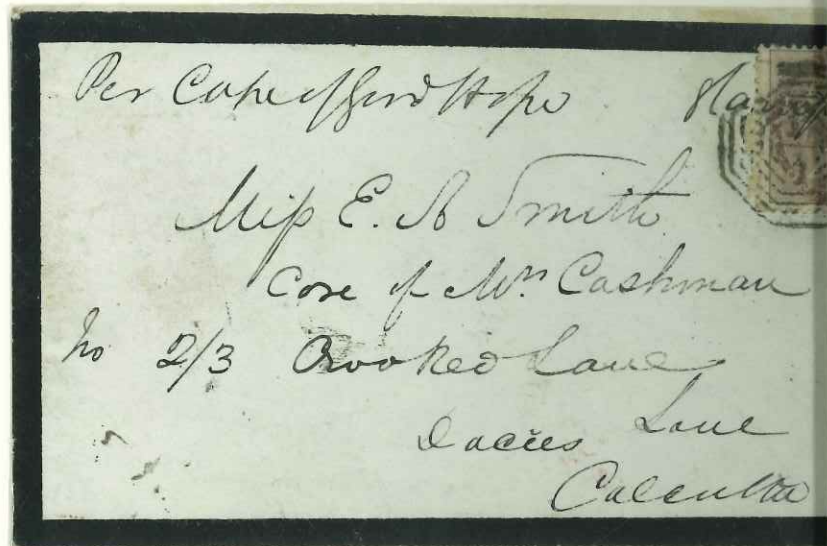 Per Cape of Good Hope
Miss E. A Smith
Care of Mrs Cashman
No 2/3 Crooked Lane
Dacres Lane
Calcutta